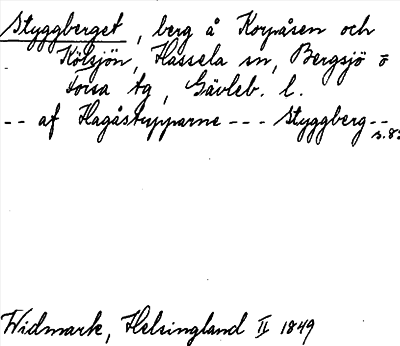 Styggberget, berg å Korpåsen och
Kölsjön, Hassela sn, Bergsjö o
Forsa tg, Gävleb. l.
-- af Hagåstupparne --- Styggberg--
s. 83
Widmark, Helsingland II 1849